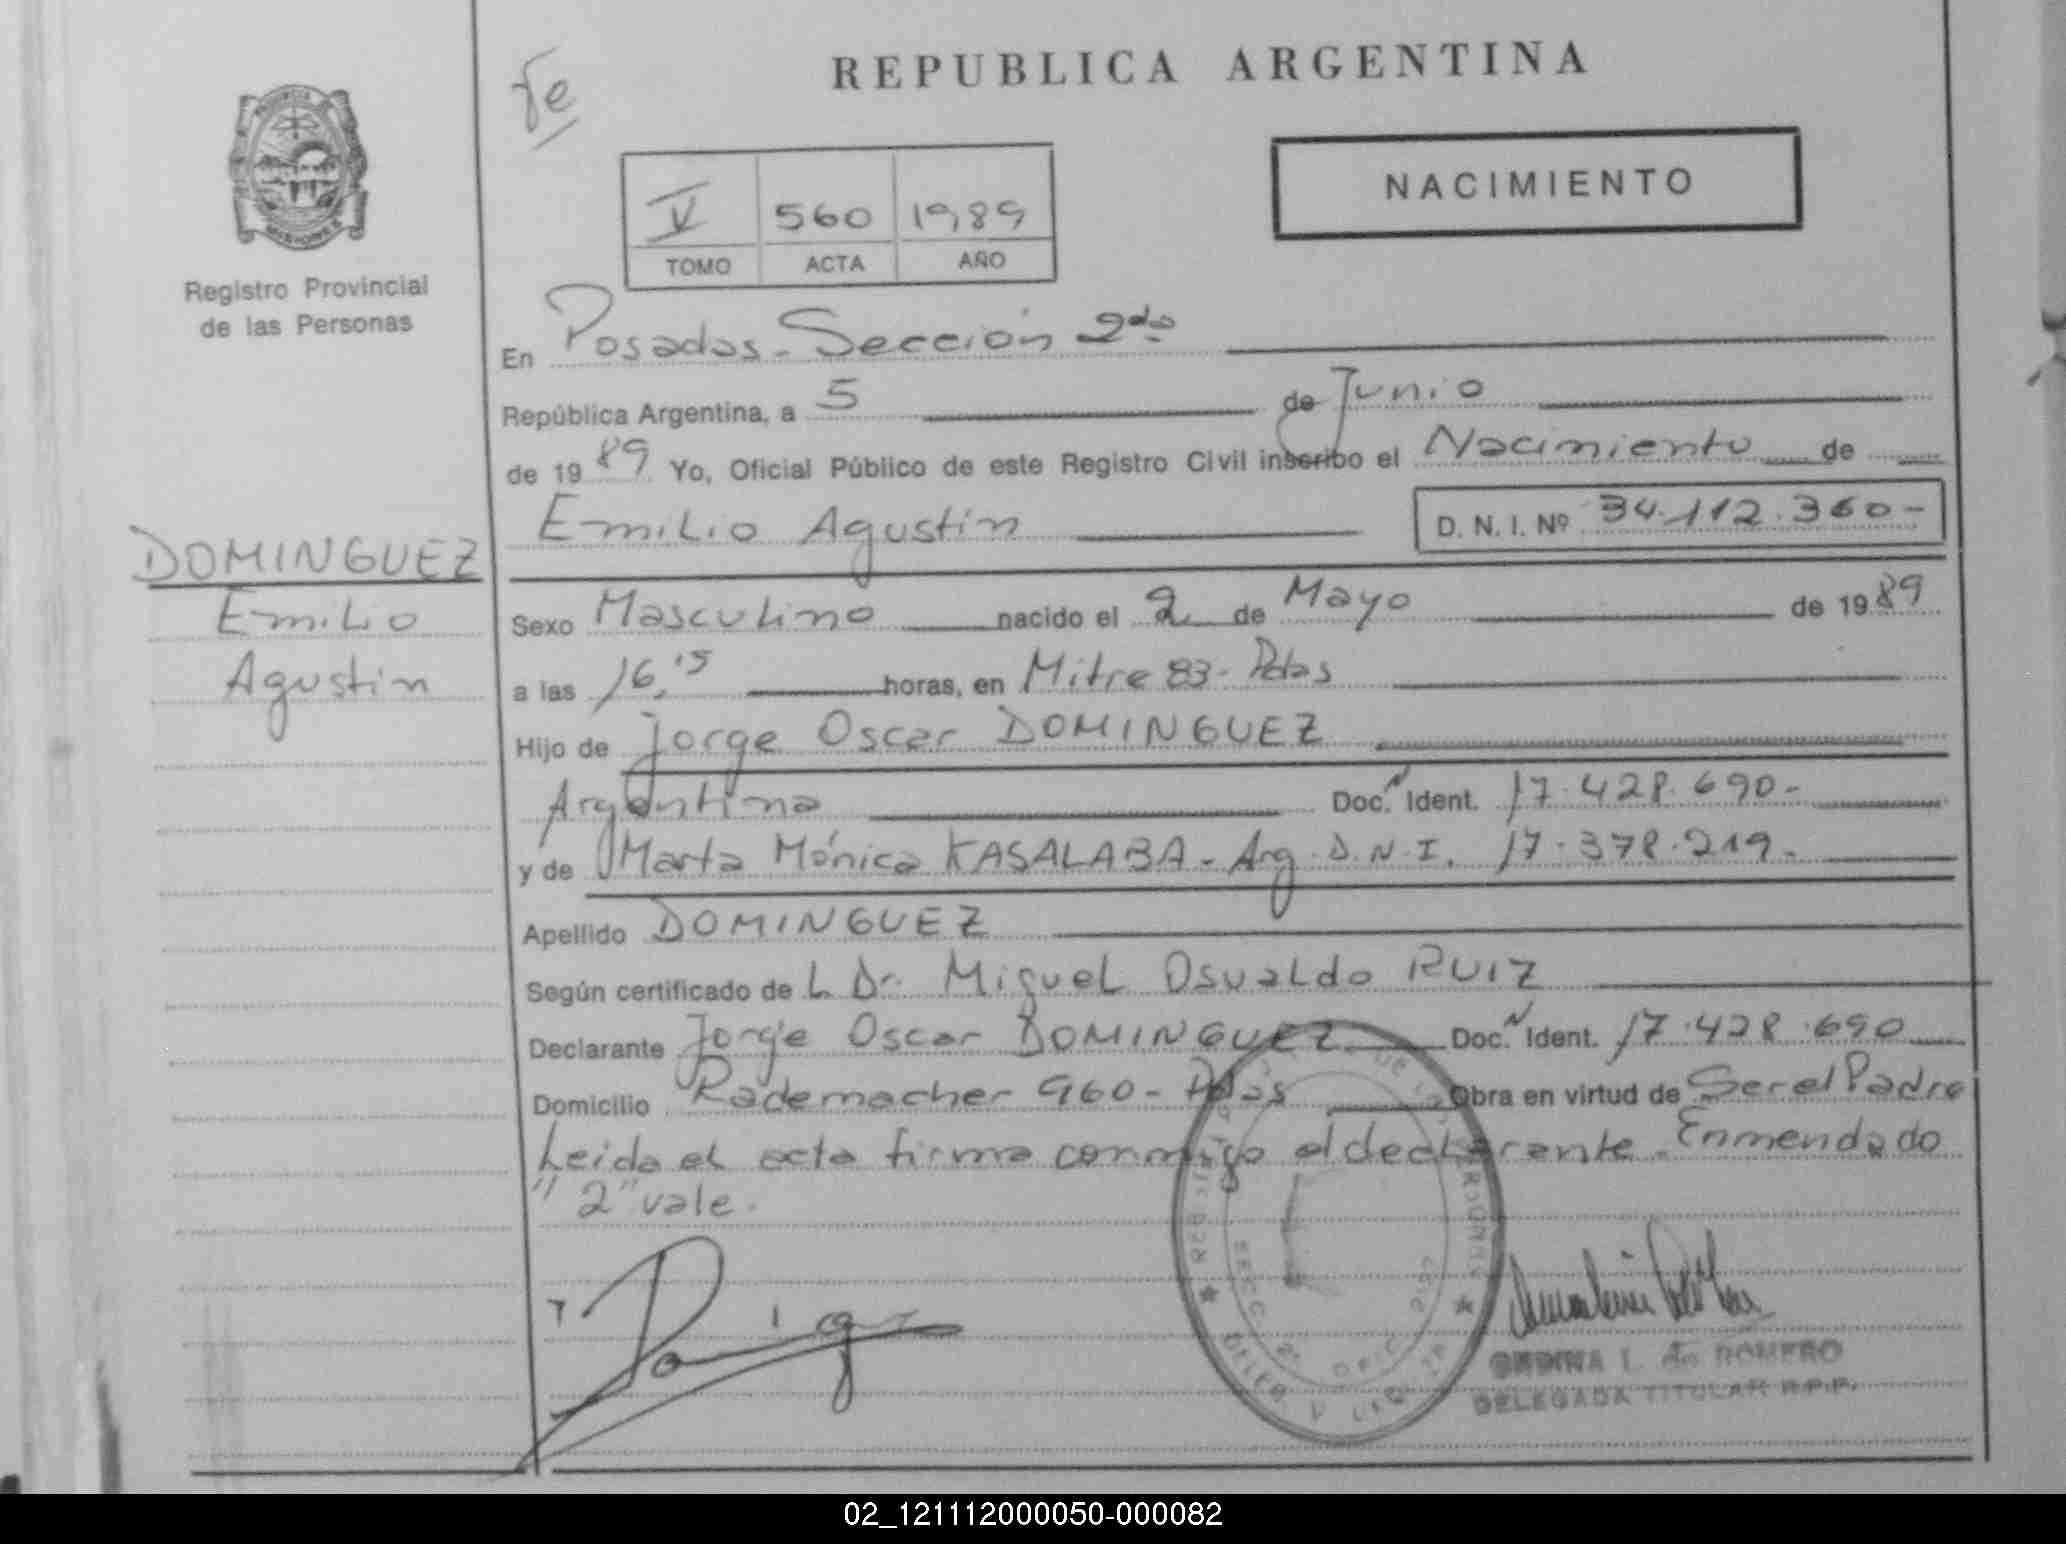 REPUBLICA ARGENTINA
NACIMIENTO
V 560 1989
TOMO ACTA AÑO
Registro Provincial
de las Personas
DOMINGUEZ
Emilio
Agustin
En Posadas - Sección 2da
República Argentina, a 5 de Junio
de 1989 Yo, Oficial Público de este Registro Civil inscribo el Nacimiento de
Emilio Agustin D. N. I. Nº 34.112.360-
Sexo Masculino nacido el 2 de Mayo de 1989
a las 16,15 horas, en Mitre 83 - Pdas
Hijo de Jorge Oscar DOMINGUEZ
Argentina Doc. Ident. 17.428.690-
y de Marta Mónica KASALABA - Arg. D.N.I. 17.378.219-
Apellido DOMINGUEZ
Según certificado de L Dr. Miguel Osvaldo RUIZ
Declarante Jorge Oscar DOMINGUEZ Doc. Ident. 17.428.690
Domicilio Rademacher 960 - Pdas Obra en virtud de Ser el Padre
Leida el acta firma conmigo el declarante. Enmendado
"2" vale.
L. de ROMERO
DELEGADA TITULAR R.P.P.
02_121112000050-000082